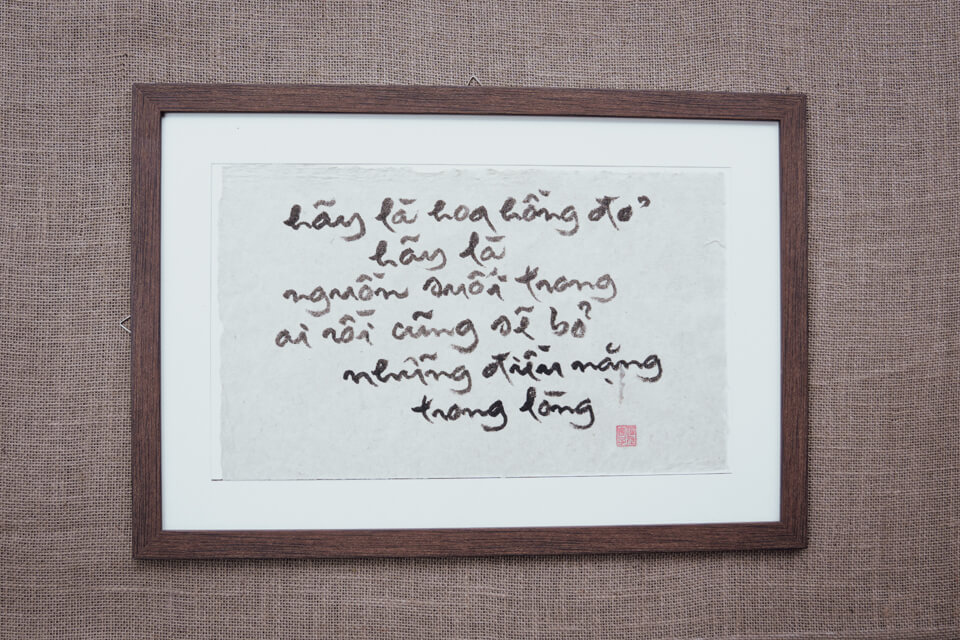 hãy là hoa hồng đỏ
hãy là
nguồn suối trong
ai rồi cũng sẽ bỏ
những điều nặng
trong lòng